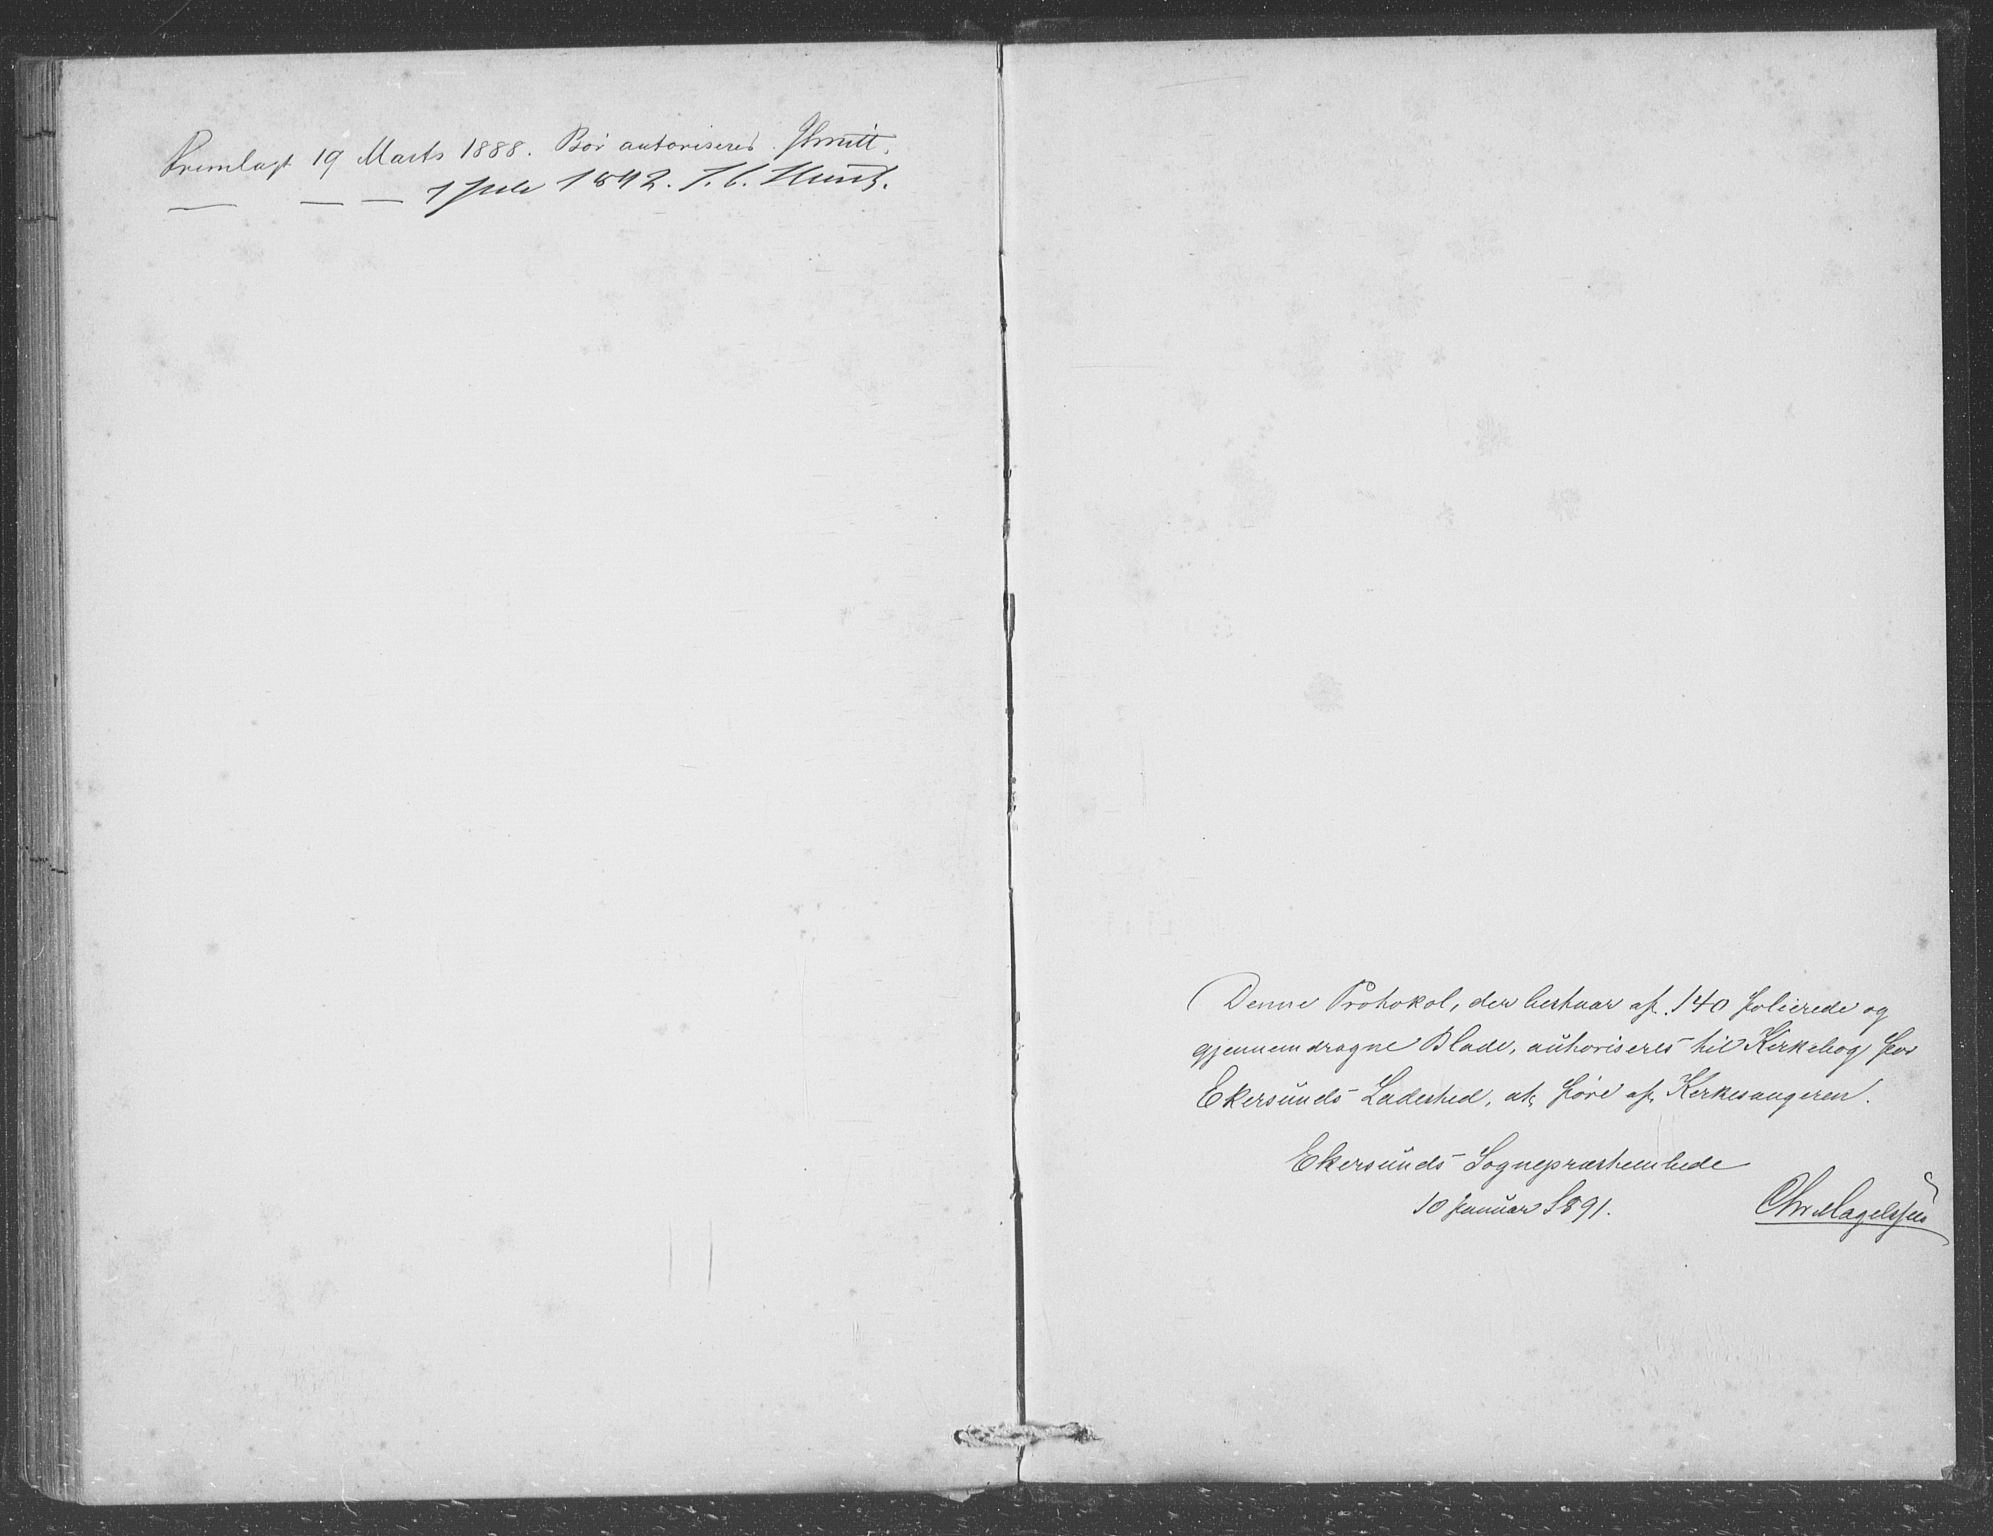 Fremlagt 19 Marts 1888. Bør autoriseres.
— — — 1 Juli 1892. J. C.
Denne Prothokol, der bestaar af 140 folierede og
gjennemdragne Blade, authoriseres til Kirkebog for
Ekersunds Ladested, at føre af Kirkesangeren.
Ekersunds Sognepræstembede
10 Januar 1891. Chr Magelssen